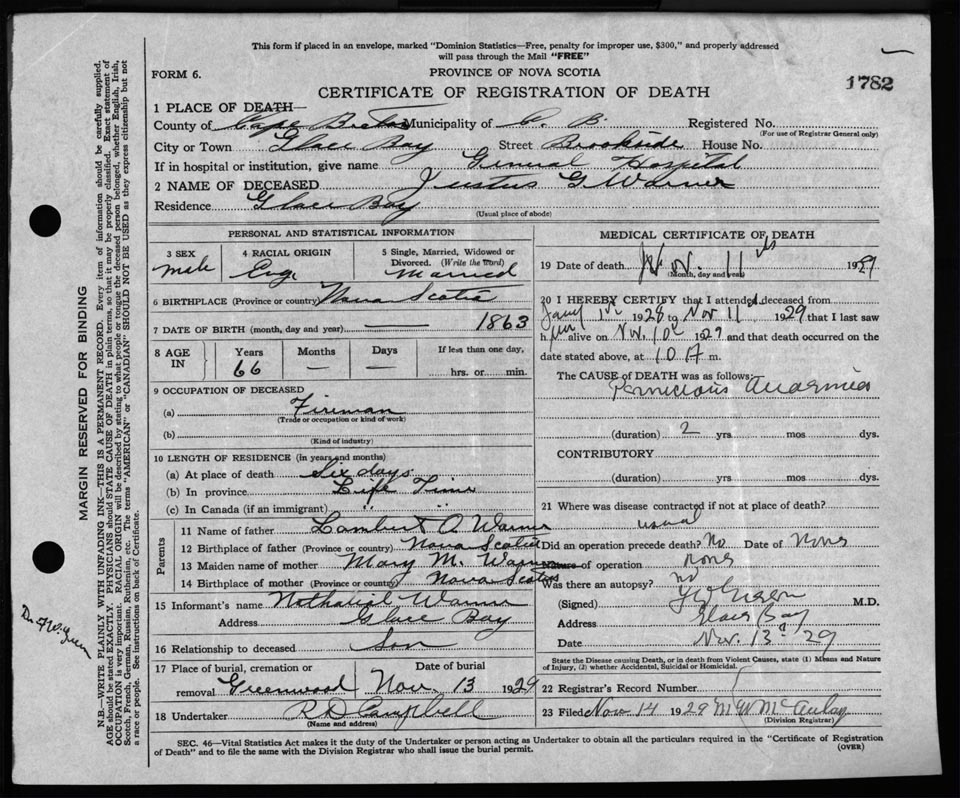 This form if placed in an envelope, marked "Dominion Statistics—Free, penalty for improper use, $300," and properly addressed
will pass through the Mail "FREE"
FORM 6.
PROVINCE OF NOVA SCOTIA
1782
CERTIFICATE OF REGISTRATION OF DEATH
1 PLACE OF DEATH—
County of Cape Breton Municipality of C. B. Registered No.
(For use of Registrar General only)
City or Town Glace Bay Street Brookside House No.
If in hospital or institution, give name General Hospital
2 NAME OF DECEASED Justus G Warner
Residence Glace Bay
(Usual place of abode)
PERSONAL AND STATISTICAL INFORMATION
3 SEX 4 RACIAL ORIGIN 5 Single, Married, Widowed or
Divorced. (Write the word)
male Eng Married
6 BIRTHPLACE (Province or country) Nova Scotia
7 DATE OF BIRTH (month, day and year) — 1863
8 AGE IN Years Months Days If less than one day,
66 — — hrs. or min.
9 OCCUPATION OF DECEASED
(a) Fireman
(Trade or occupation or kind of work)
(b)
(Kind of industry)
10 LENGTH OF RESIDENCE (in years and months)
(a) At place of death Six days
(b) In province Life Time
(c) In Canada (if an immigrant) " "
Parents
11 Name of father Lambert O. Warner
12 Birthplace of father (Province or country) Nova Scotia
13 Maiden name of mother Mary M. Warner
14 Birthplace of mother (Province or country) Nova Scotia
15 Informant's name Nathaniel Warner
Address Glace Bay
16 Relationship to deceased Son
17 Place of burial, cremation or Date of burial
removal Greenwood Nov 13 1929
18 Undertaker R D Campbell
(Name and address)
MEDICAL CERTIFICATE OF DEATH
19 Date of death Nov. 11th 1929
(Month, day and year)
20 I HEREBY CERTIFY that I attended deceased from
Jany 1st 1928 to Nov 11 1929 that I last saw
him alive on Nov. 10th 1929 and that death occurred on the
date stated above, at 10 A m.
The CAUSE OF DEATH was as follows:
Pernicious Anaemia
(duration) 2 yrs mos dys.
CONTRIBUTORY
(duration) yrs. mos. dys.
21 Where was disease contracted if not at place of death?
usual
Did an operation precede death? No Date of None
Nature of operation None
Was there an autopsy? no
(Signed) M.D.
Address Glace Bay
Date Nov. 13 29
State the Disease causing Death, or in death from Violent Causes, state (1) Means and Nature
of Injury, (2) whether Accidental, Suicidal or Homicidal.
22 Registrar's Record Number
23 Filed Nov 14 1929 M W McAulay
(Division Registrar)
SEC. 46—Vital Statistics Act makes it the duty of the Undertaker or person acting as Undertaker to obtain all the particulars required in the "Certificate of Registration
of Death" and to file the same with the Division Registrar who shall issue the burial permit.
(OVER)
MARGIN RESERVED FOR BINDING
N.B.—WRITE PLAINLY WITH UNFADING INK—THIS IS A PERMANENT RECORD. Every item of information should be carefully supplied.
AGE should be stated EXACTLY. PHYSICIANS should STATE CAUSE OF DEATH in plain terms, so that it may be properly classified. Exact statement of
OCCUPATION is very important. RACIAL ORIGIN will be described by stating to what people or tongue the deceased person belonged, whether English, Irish,
Scotch, French, German, Russian, Ruthenian, etc. The terms "AMERICAN" or "CANADIAN" SHOULD NOT BE USED as they express citizenship but not
a race or people. See instructions on back of Certificate.